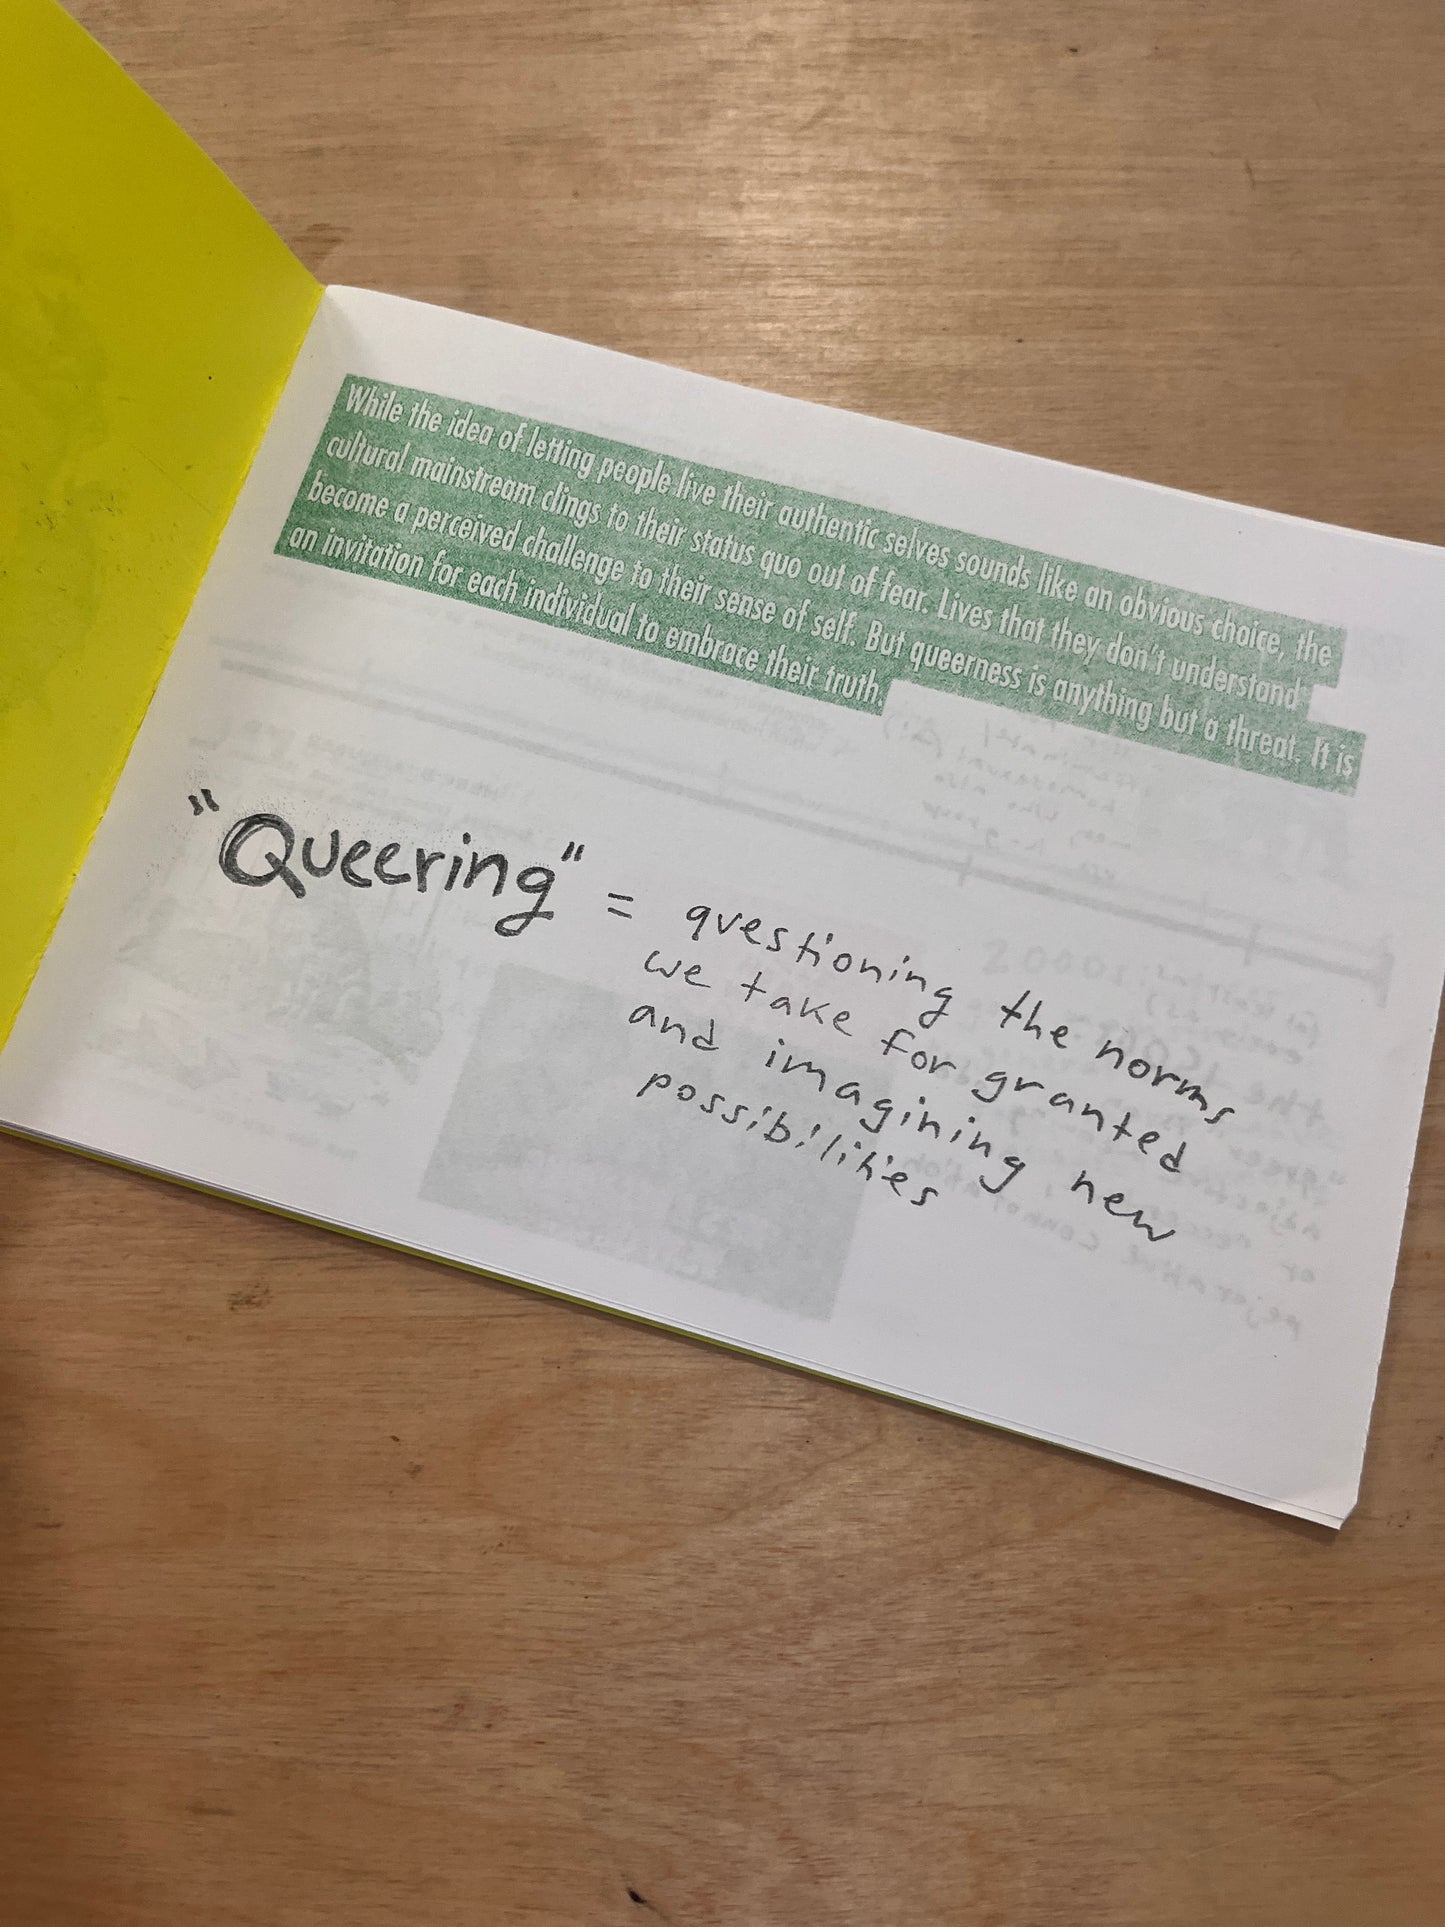 While the idea of letting people live their authentic selves sounds like an obvious choice, the
cultural mainstream clings to their status quo out of fear. Lives that they don't understand
become a perceived challenge to their sense of self. But queerness is anything but a threat. It is
an invitation for each individual to embrace their truth.
"Queering" = questioning the norms
we take for granted
and imagining new
possibilities